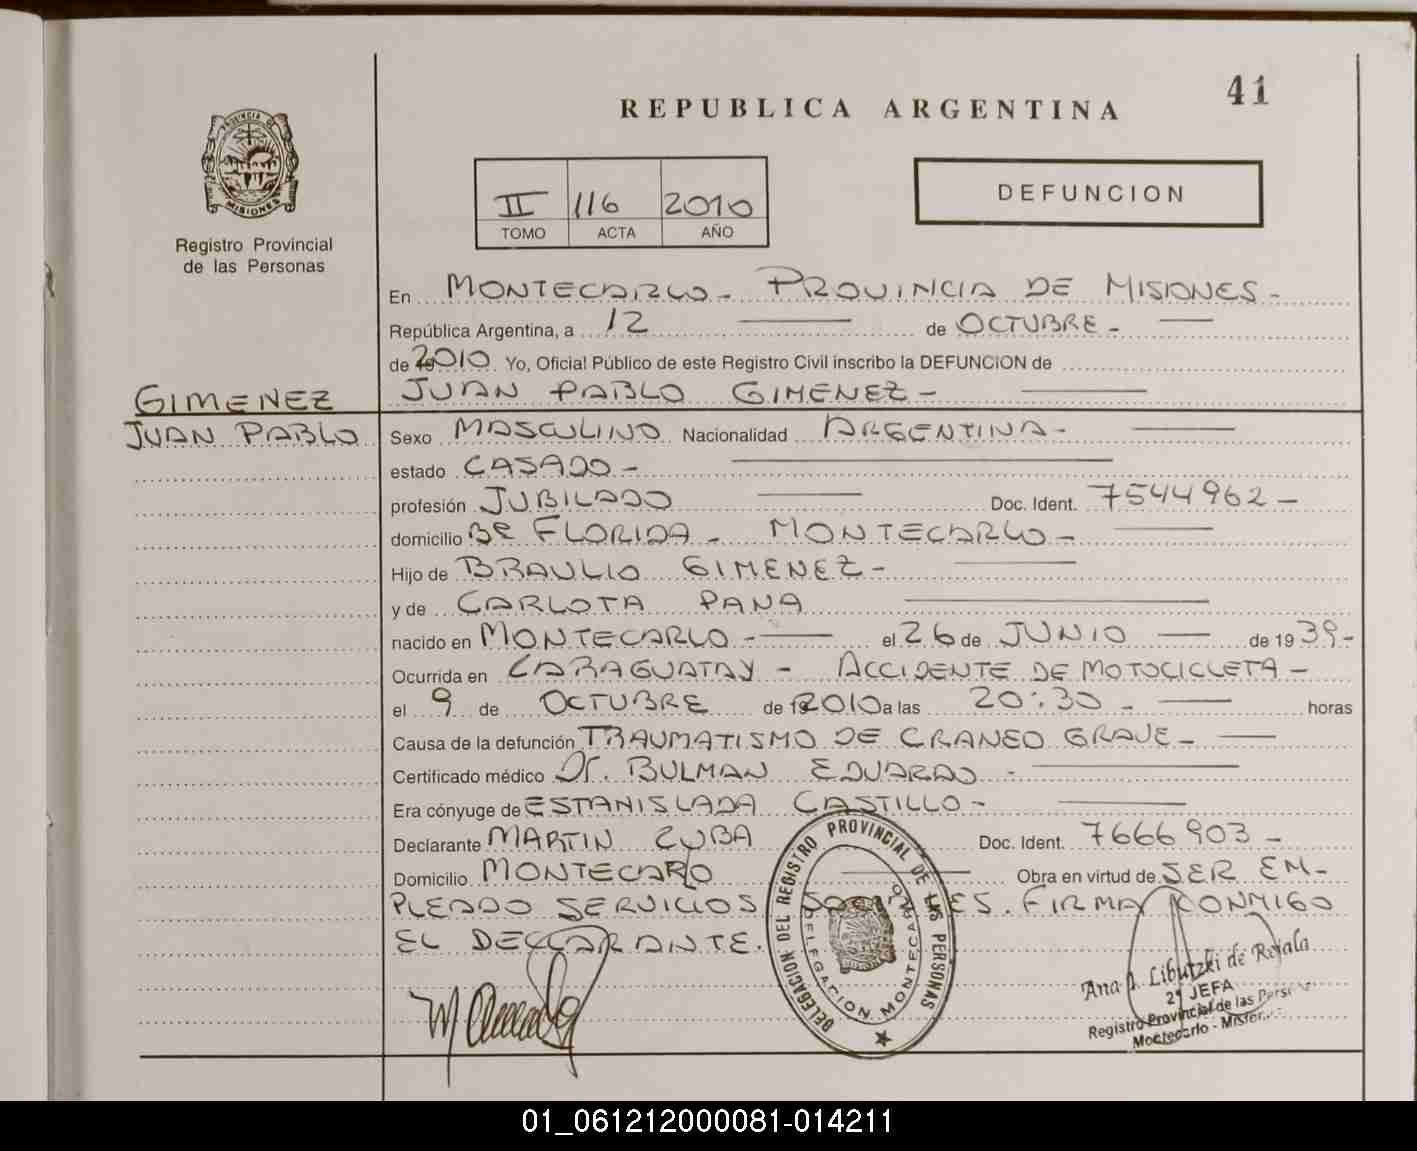 41
REPUBLICA ARGENTINA
PROVINCIA DE MISIONES
Registro Provincial
de las Personas
II 116 2010
TOMO ACTA AÑO
DEFUNCION
En MONTECARLO - PROVINCIA DE MISIONES -
República Argentina, a 12 de OCTUBRE -
de 2010 Yo, Oficial Público de este Registro Civil inscribo la DEFUNCION de
JUAN PABLO GIMENEZ -
GIMENEZ
JUAN PABLO
Sexo MASCULINO Nacionalidad ARGENTINA -
estado CASADO -
profesión JUBILADO Doc. Ident. 7544962 -
domicilio Bº FLORIDA - MONTECARLO -
Hijo de BRAULIO GIMENEZ -
y de CARLOTA PANA
nacido en MONTECARLO - el 26 de JUNIO de 1939 -
Ocurrida en CARAGUATAY - ACCIDENTE DE MOTOCICLETA -
el 9 de OCTUBRE de 2010 a las 20:30 - horas
Causa de la defunción TRAUMATISMO DE CRANEO GRAVE -
Certificado médico Dr. BULMAN EDUARDO -
Era cónyuge de ESTANISLADA CASTILLO -
Declarante MARTIN ZUBA Doc. Ident. 7666903 -
Domicilio MONTECARLO Obra en virtud de SER EM-
PLEADO SERVICIOS SOCIALES. FIRMA CONMIGO
EL DECLARANTE.
DELEGACION DEL REGISTRO PROVINCIAL DE LAS PERSONAS
DELEGACION MONTECARLO
Ana J. Libutzki de Rejala
2º JEFA
Registro Provincial de las
Montecarlo -
01_061212000081-014211